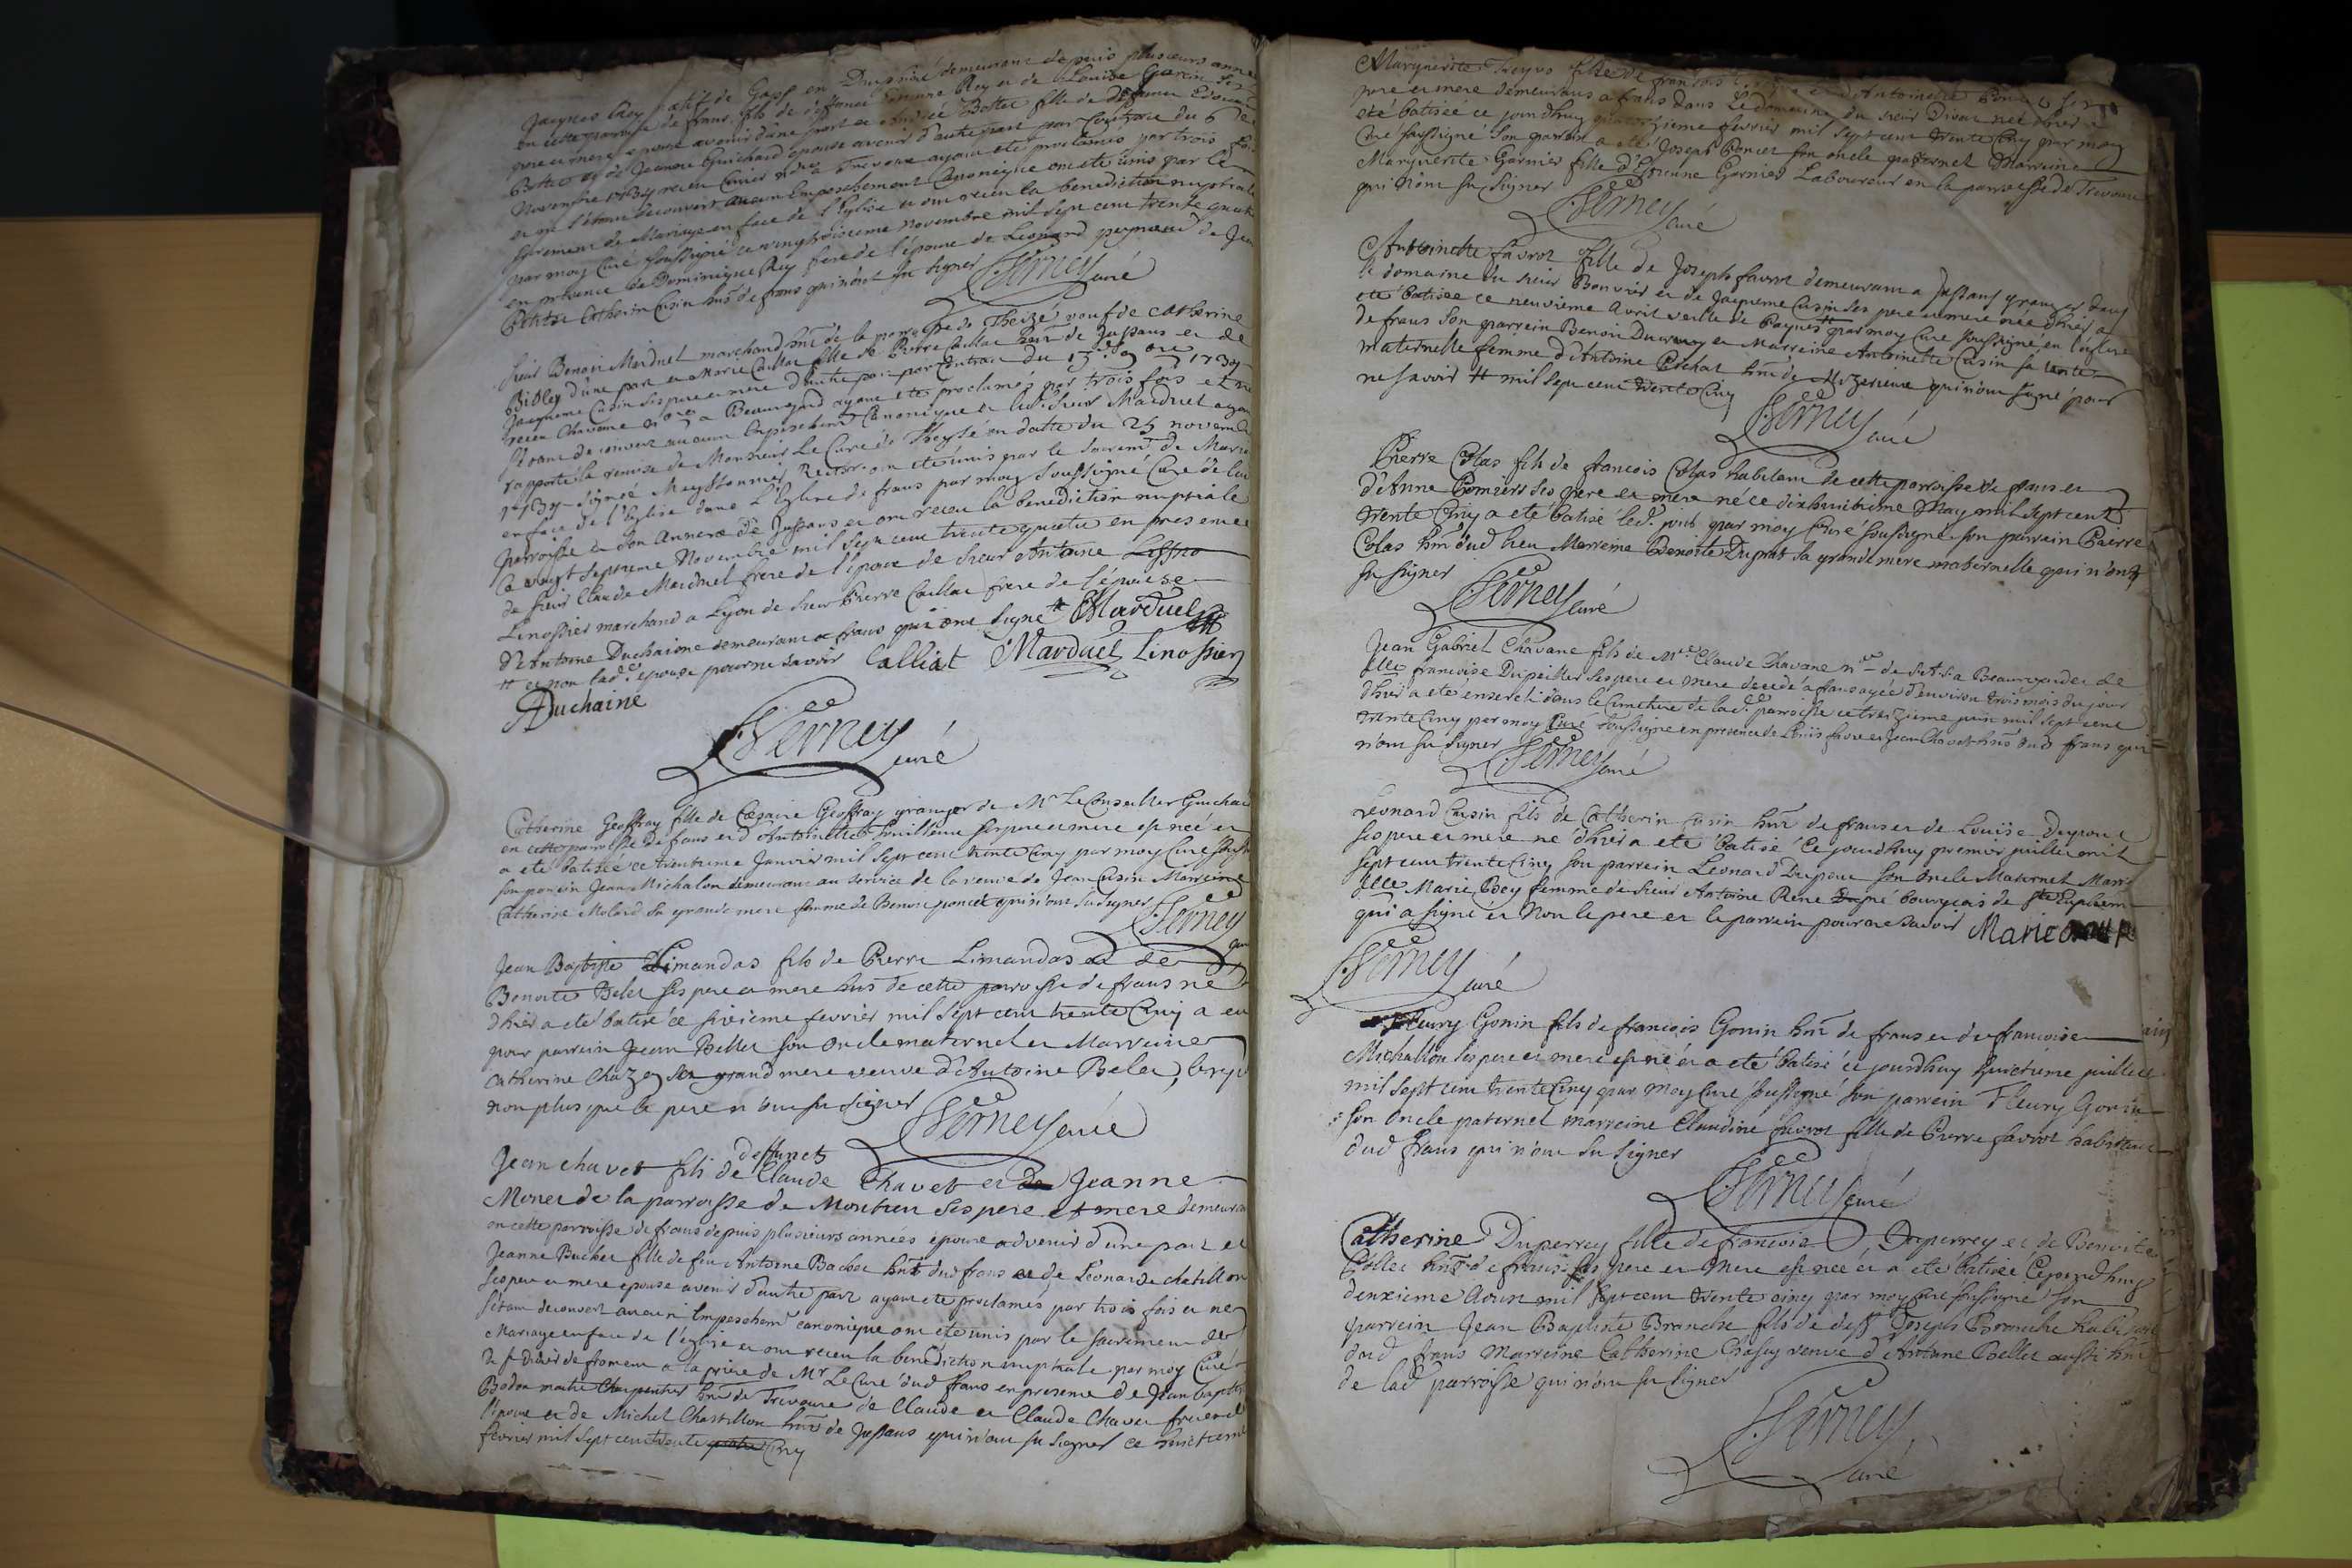 Jacques Rey natif de Gapp en Dauphiné demeurant depuis plusieurs anné
en cette parroisse de frans fils de deffunct Rey et de Louise Garcin ses
pere et mere epoux avenir d'une part et Bottet fille de deffunct Edouard
Bottet et de Jeanne Guichard epouse avenir d'autre part par contract du 6e
Novembre 1734 receu nore a Trevoux ayant eté proclamés par trois fois
et ne s'étant decouvert aucun Empeschement Canonique ont eté unis par le
sacrement de Mariage en face de l'Eglise et ont receu la benediction nuptiale
par moy Curé soussigné ce vingt novembre mil sept cent trente quatre
en presence de Dominique Rey frere de l'époux de Leonard de
Catherin Cusin hnt de frans qui n'ont su signer Verney curé
Sieur Benoit Marduel marchand hnt de la parroisse de Theizé veuf de Catherine
d'une part et Marie Calliat fille de Pierre Calliat hnt de Jassans et de
Jaqueme Cusin ses pere et mere d'autre part par contract du 1734
receu Chavane nore a Beauregard ayant eté proclamés par trois fois et ne
s'étant decouvert aucun Empeschemt Canonique et led. sieur Marduel ayant
rapporté la remise de Monsieur Le Curé de Theyzé en datte du 25 novembre
1734 signée ont eté unis par le sacremt de Mariage
en face de l'Eglise dans L'Eglise de frans par moy soussigné Curé de lad.
parroisse et son annexe de Jassans et ont receu la benediction nuptiale
ce vingt septieme Novembre mil sept cent trente quatre en presence
de sieur Claude Marduel frere de l'époux de sieur Antoine
Linossier marchand a Lyon de sieur Pierre Calliat frere de l'épouse
d'Antoine Duchaine demeurant a frans qui ont signé Marduel
et non lad. epouse pour ne savoir Calliat Marduel Linossier
Duchaine
Verney curé
Catherine Geoffray fille de Cesaire Geoffray granger de Mr Le Conseiller Guichard
en cette parroisse de frans et d'Antoinette ses pere et mere est née et
a eté batisée ce trentieme Janvier mil sept cent trente Cinq par moy Curé soussigné
son parrein Jean Michalon demeurant au service de la veuve de Jean Cusin Marreine
Catherine Molard sa grande mere femme de Benoit poncet qui n'ont su signer
Verney curé
Jean Baptiste Limandas fils de Pierre Limandas et de
Benoite Belet ses pere et mere hns de cette parroisse de frans né
d'hier a eté batisé ce sixieme fevrier mil sept cent trente Cinq a eu
pour parrein Jean Bellet son oncle maternel et Marreine
Catherine Chazey sa grand mere veuve d'Antoine Belet, lesqu
non plus que le pere n'ont su signer Verney curé
deffunct
Jean chavet fils de Claude Chavet et de Jeanne
Monet de la parroisse de Montieu ses pere et mere demeurant
en cette parroisse de frans depuis plusieurs années epoux advenir d'une part et
Jeanne Buchet fille de feu Antoine Bachet hnt dud frans et de Leonarde chatillon
ses pere et mere epouse avenir d'autre part ayant eté proclamés par trois fois et ne
s'étant decouvert aucun Empeschemt canonique ont eté unis par le sacrement de
Mariage en face de l'Eglise et ont receu la benediction nuptiale par moy Curé
de st Didier de froment a la priere de Mr Le Curé dud frans en presence de Jean baptiste
Bodon maitre Charpentier hnt de Trevoux de Claude et Claude Chavet freres de
l'époux et de Michel Chastillon hnt de Jassans qui n'ont su signer ce huictieme
fevrier mil sept cent trente quatre Cinq
Marguerite Treyvo fille de françois et d'Antoinette Poncet ses
pere et mere demeurans a frans dans Le domaine du sieur née d'hier a
eté batisée ce jourdhuy fevrier mil sept cent trente Cinq par moy
Curé soussigné son parrein a eté Joseph Poncet son oncle paternel Marreine
Marguerite Garnier fille d'Etienne Garnier Laboureur en la parroisse de Trevoux
qui n'ont su signer Verney curé
Antoinette favrot fille de Joseph favrot demeurant a Jassans granger dans
le domaine du sieur Bonvier et de Jaqueme Cusin ses pere et mere née d'hier a
eté batisée ce neuvieme Avril veille de Paques par moy Curé soussigné en l'Eglise
de frans son parrein Benoit et Marreine Antoinette Cusin sa tante
maternelle femme d'Antoine hnt de Mizerieux qui n'ont signé pour
ne savoir mil sept cent trente Cinq
Verney curé
Pierre Colas fils de francois Colas habitant de cette parroisse de frans et
d'Anne Pomiers ses pere et mere né ce dixhuitieme May mil sept cent
trente Cinq a eté batisé led. jour par moy Curé soussigné son parrain Pierre
Colas hnt dud lieu Marreine Benoite Duprat sa grande mere maternelle qui n'ont
su signer Verney curé
Jean Gabriel Chavane fils de Mre Claude Chavane nore de S.A.S. a Beauregard et de
Dlle francoise Dupeillet ses pere et mere decedé a frans agée d'environ trois mois du jour
d'hier a eté enseveli dans le Cimetiere de lad. parroisse ce treizieme juin mil sept cent
trente Cinq par moy Curé soussigné en presence de Louis favre et Jean Chavet hns dud frans qui
n'ont su signer Verney curé
Leonard Cusin fils de Catherin Cusin hnt de frans et de Louise Dupoux
ses pere et mere né d'hier a eté batisé ce jourdhuy premier juillet mil
sept cent trente Cinq son parrein Leonard Dupoux son Oncle Maternel Marr
Dlle Marie Rey femme de sieur Antoine René bourgeois de ste Euphemie
qui a signé et Non le pere et le parrein pour ne savoir Marie
Verney curé
Fleury Gonin fils de francois Gonin hnt de frans et de francoise
Michallon ses pere et mere est né et a eté batisé ce jourdhuy huictieme juillet
mil sept cent trente Cinq par moy Curé soussigné son parrein Fleury Gonin
son Oncle paternel marreine Claudine favrot fille de Pierre favrot habitant
dud frans qui n'ont su signer
Verney curé
Catherine Duperrey fille de francois Duperrey et de Benoite
Bellet hnt de frans ses pere et Mere est née et a eté batisée Cejourdhuy
deuxieme Aoust mil sept cent trente cinq par moy Curé soussigné son
parrein Jean Baptiste Branche fils de defft Joseph Branche habitant
dud frans Marreine Catherine Chasey veuve d'Antoine Bellet aussi hnt
de lad parroisse qui n'ont su signer
Verney
curé